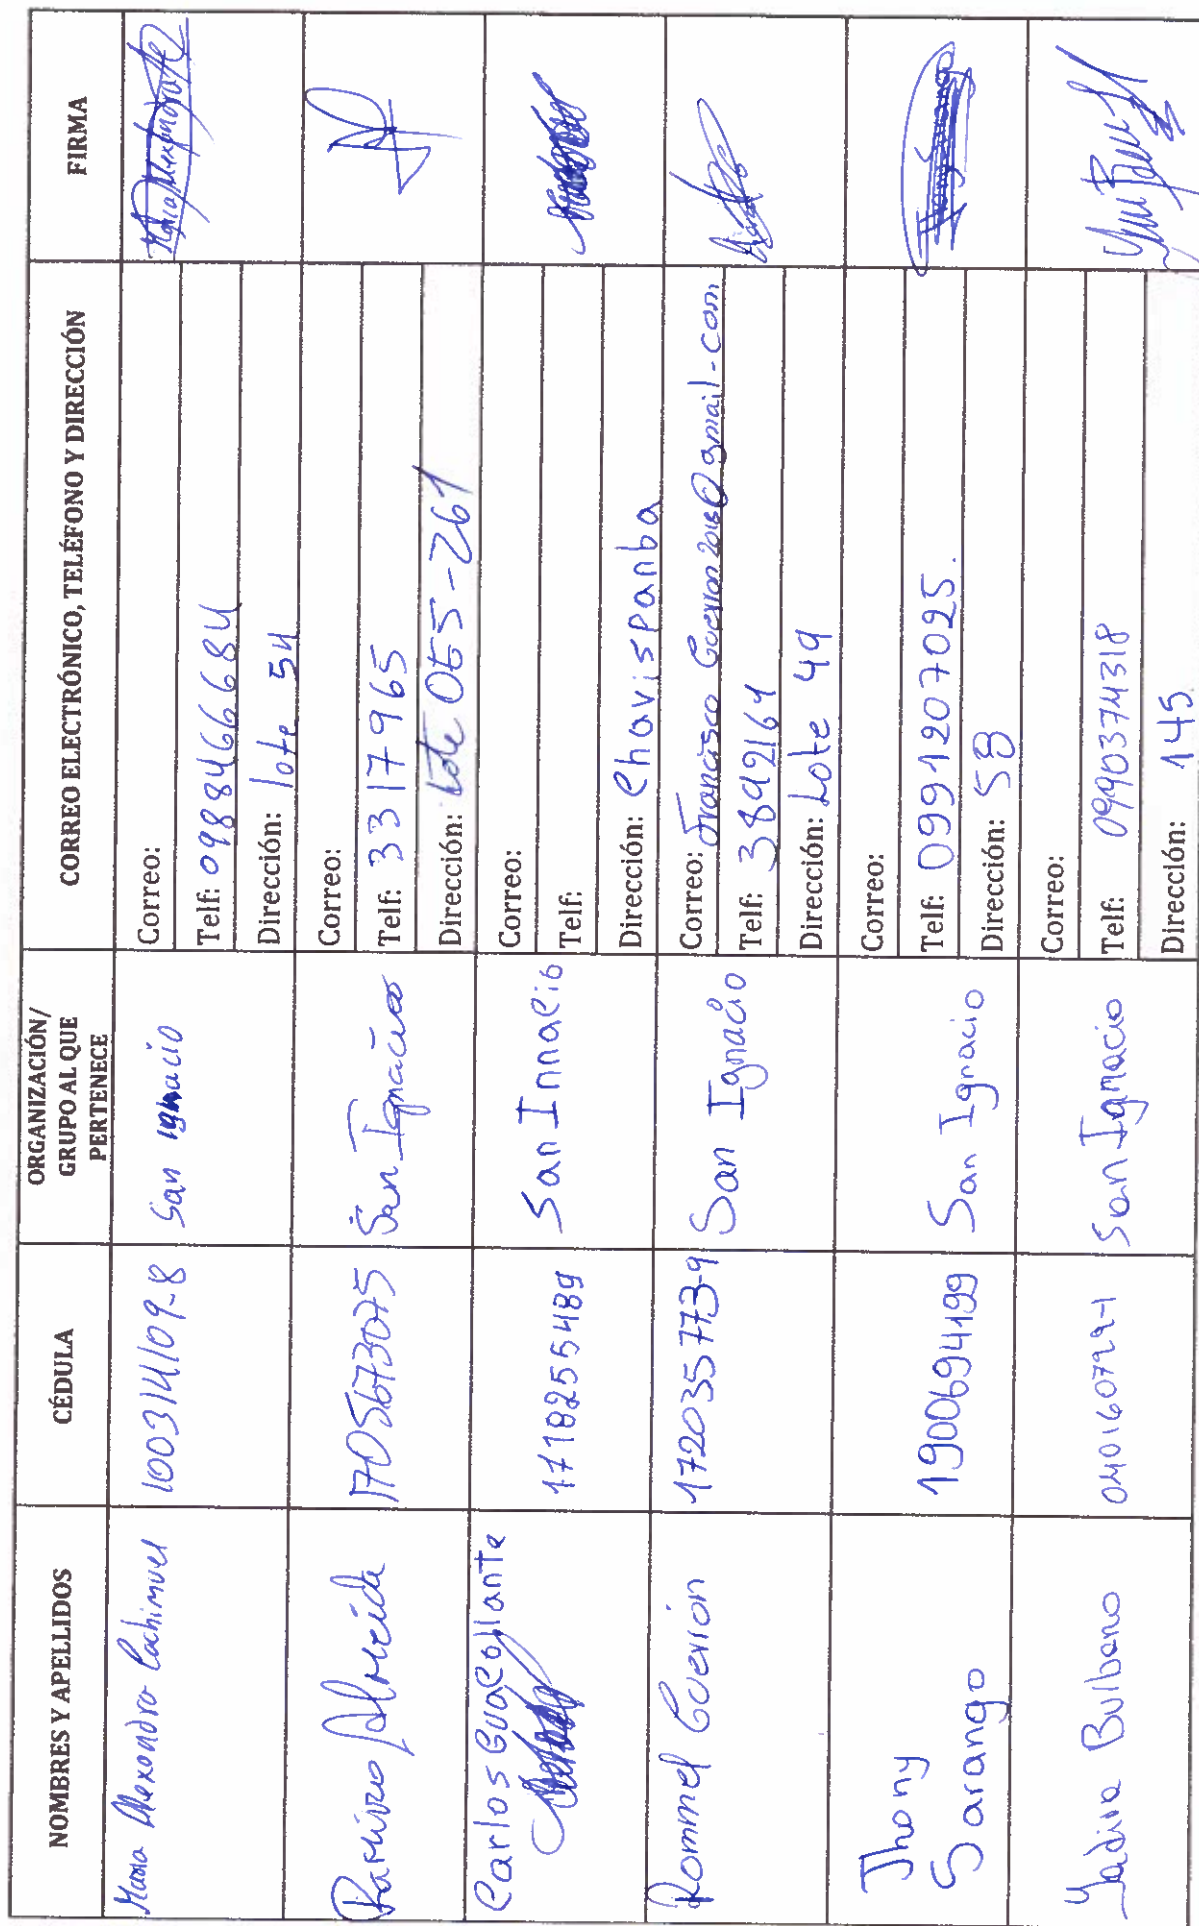 NOMBRES Y APELLIDOS
CÉDULA
ORGANIZACIÓN/
GRUPO AL QUE
PERTENECE
CORREO ELECTRÓNICO, TELÉFONO Y DIRECCIÓN
FIRMA
Maria Alexandra Cachimuel
100314109-8
San Ignacio
Correo:
Telf: 0988466684
Dirección: lote 54
Ramiro Almeida
1705673075
San Ignacio
Correo:
Telf: 3317965
Dirección: Lote OE5-261
Carlos Guacollante
1718255489
San Innacio
Correo:
Telf:
Dirección: Chavispanba
Rommel Guerron
172035773-9
San Ignacio
Correo: Francisco Guerron2018@gmail-com
Telf: 3892164
Dirección: Lote 49
Jhony
Sarango
1900694199
San Ignacio
Correo:
Telf: 0991207025.
Dirección: 58
Jhony Sarango
Yadira Bulbano
040160799-1
San Ignacio
Correo:
Telf: 0990374318
Dirección: 145